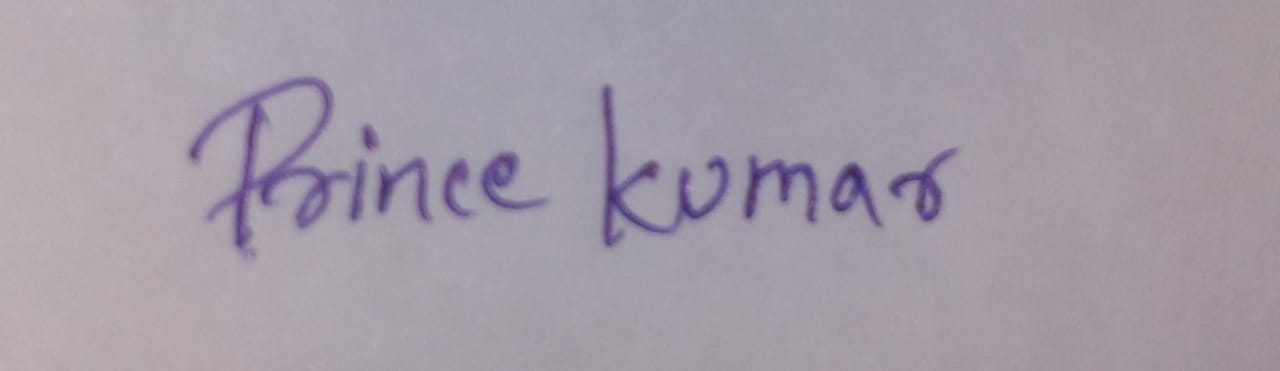 Prince kumar